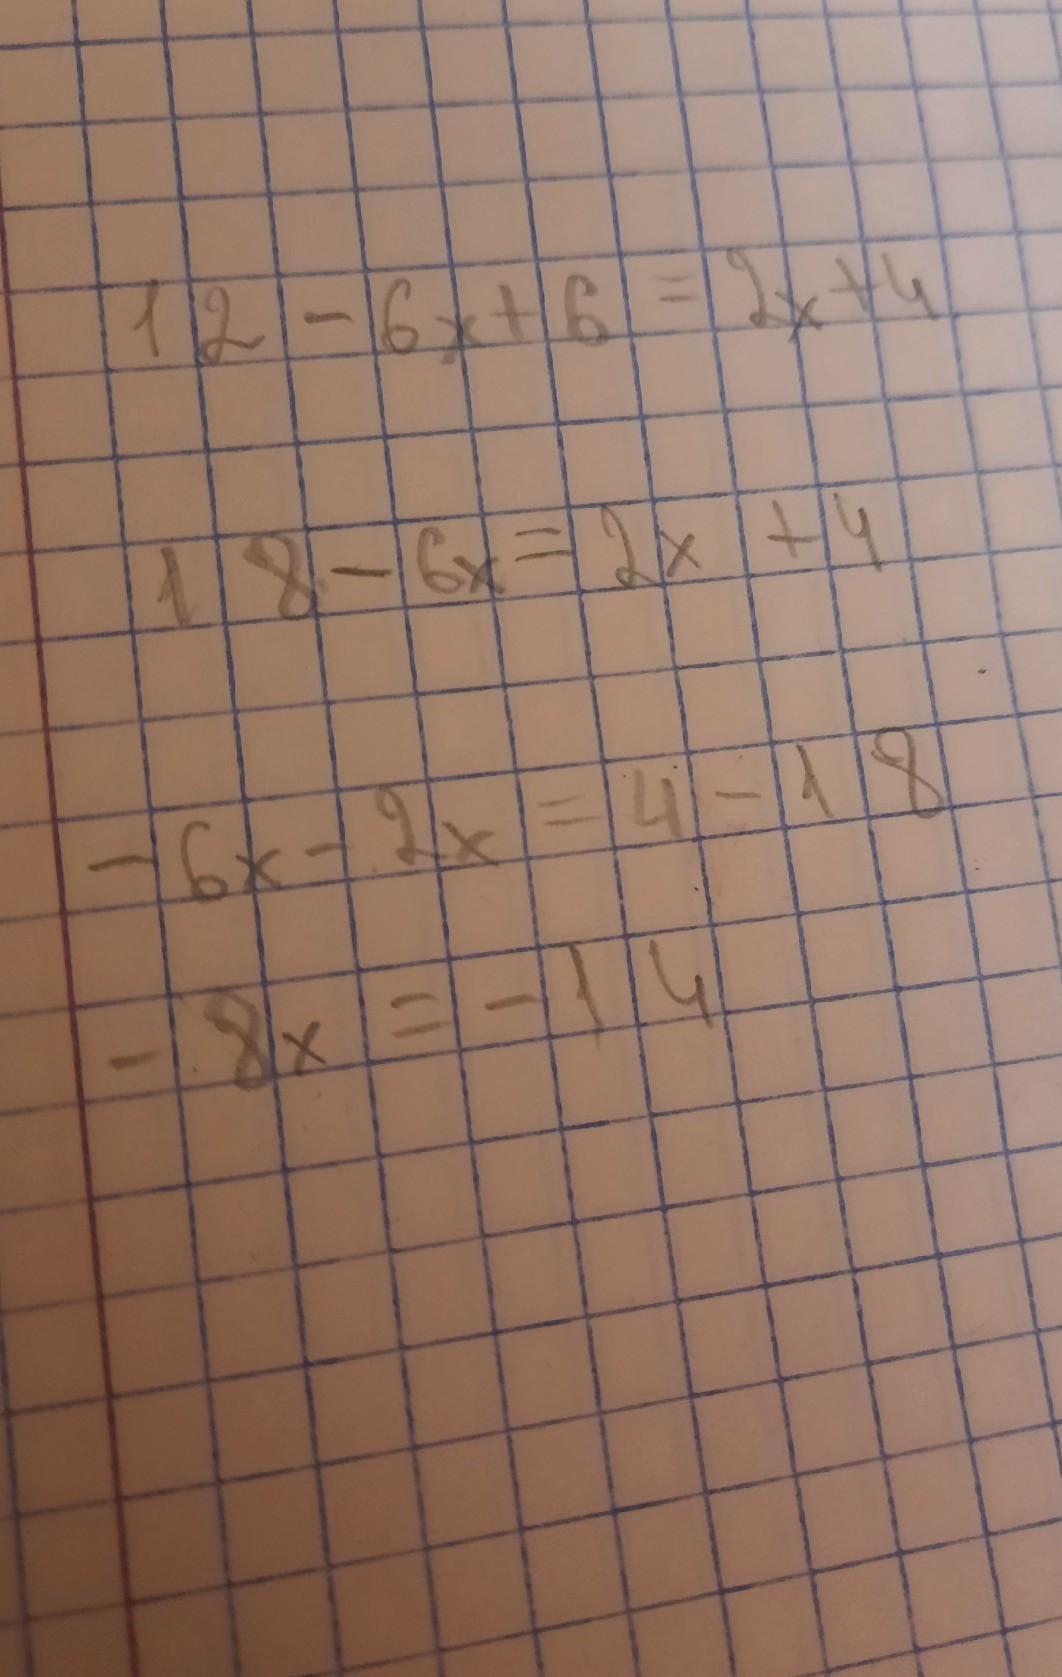 12 - 6x + 6 = 2x + 4
18 - 6x = 2x + 4
- 6x - 2x = 4 - 18
- 8x = - 14